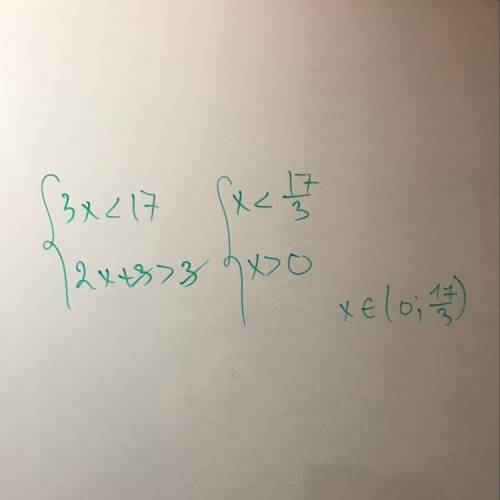 { 3x < 17
2x + 3 > 3
{ x < 17/3
x > 0
x ∈ (0; 17/3)